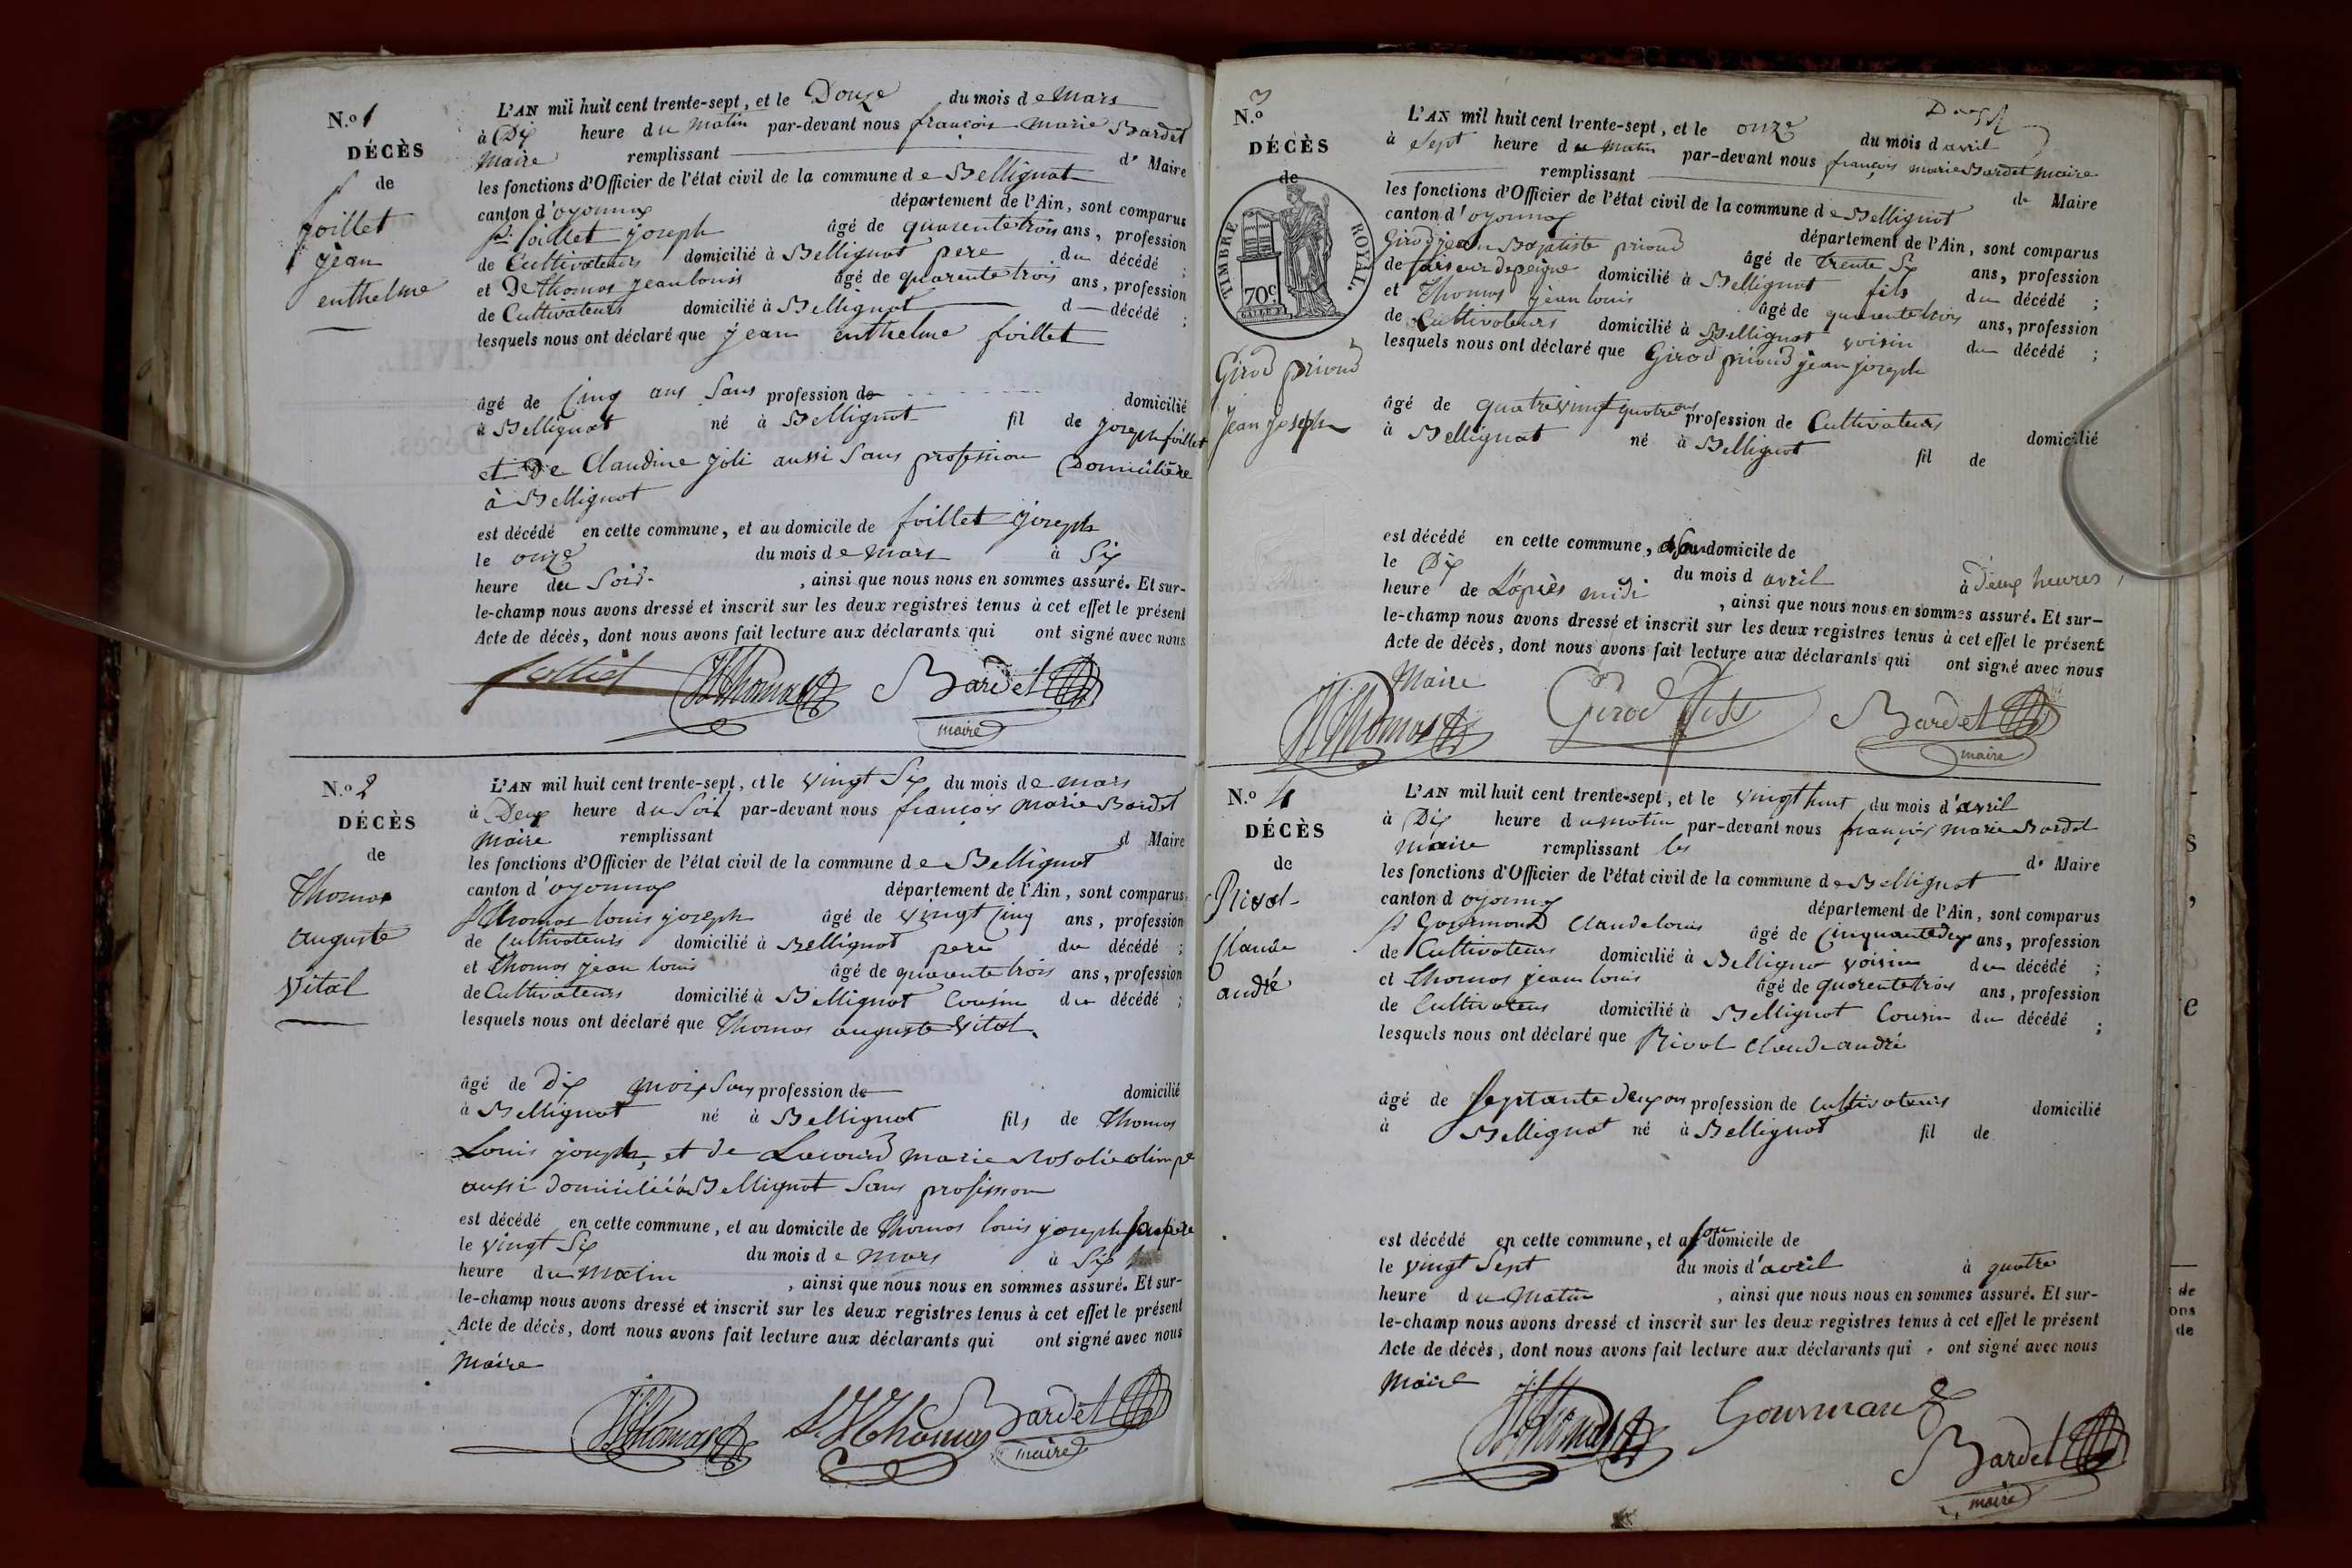 N.º 1
DÉCÈS
de
foillet
jean
enthelme
L'AN mil huit cent trente-sept, et le Douze du mois de Mars
à Dix heure du Matin par-devant nous françois Marie Bardet
Maire remplissant d° Maire
les fonctions d'Officier de l'état civil de la commune de Bellignat
canton d'oyonnax département de l'Ain, sont comparus
foillet joseph âgé de quarente trois ans, profession
de Cultivateurs domicilié à Bellignat pere du décédé ;
et De thomas jean louis âgé de quarente trois ans, profession
de Cultivateurs domicilié à Bellignat d décédé ;
lesquels nous ont déclaré que jean enthelme foillet
âgé de Cinq ans Sans profession de domicilié
à Bellignat né à Bellignat fil de joseph foillet
et De Claudine joli aussi Sans profession Domicilière
à Bellignat
est décédé en cette commune, et au domicile de foillet joseph
le onze du mois de Mars à Six
heure du Soir , ainsi que nous nous en sommes assuré. Et sur-
le-champ nous avons dressé et inscrit sur les deux registres tenus à cet effet le présent
Acte de décès, dont nous avons fait lecture aux déclarants qui ont signé avec nous
follict JLThomas Bardet
maire
N.º 2
DÉCÈS
de
Thomas
auguste
Vital
L'AN mil huit cent trente-sept, et le vingt Six du mois de mars
à Deux heure du Soir par-devant nous françois Marie Bardet
Maire remplissant d Maire
les fonctions d'Officier de l'état civil de la commune de Bellignat
canton d'oyonnax département de l'Ain, sont comparus
Thomas louis joseph âgé de vingt Cinq ans, profession
de Cultivateurs domicilié à Bellignat pere du décédé ;
et Thomas jean louis âgé de quarente trois ans, profession
de Cultivateurs domicilié à Bellignat Cousin du décédé ;
lesquels nous ont déclaré que Thomas auguste Vital
âgé de Dix mois Sans profession de domicilié
à Bellignat né à Bellignat fils de Thomas
Louis joseph, et de Lacourd marie Rosalie olimpe
aussi domiciliée à Bellignat Sans profission
est décédé en cette commune, et au domicile de Thomas louis joseph
le vingt Six du mois de Mars à Six
heure du Matin , ainsi que nous nous en sommes assuré. Et sur-
le-champ nous avons dressé et inscrit sur les deux registres tenus à cet effet le présent
Acte de décès, dont nous avons fait lecture aux déclarants qui ont signé avec nous
Maire
JLThomas L.J Thomas Bardet
maire
N.º 3
DÉCÈS
de
TIMBRE ROYAL.
70c
Girod priond
jean joseph
L'AN mil huit cent trente-sept, et le onze du mois d avril
à Sept heure du Matin par-devant nous françois marie Bardet Maire
remplissant d° Maire
les fonctions d'Officier de l'état civil de la commune de Bellignat
canton d'oyonnax département de l'Ain, sont comparus
Girod jean Baptiste priond âgé de trente Six ans, profession
de faiseur de peigne domicilié à Bellignat fils du décédé ;
et Thomas jean louis âgé de quarente trois ans, profession
de Cultivateurs domicilié à Bellignat voisin du décédé ;
lesquels nous ont déclaré que Girod priond jean joseph
âgé de quatre vingt quatre ans profession de Cultivateurs domicilié
à Bellignat né à Bellignat fil de
est décédé en cette commune, à Son domicile de
le Dix du mois d avril à deux heures
heure de L'après midi , ainsi que nous nous en sommes assuré. Et sur-
le-champ nous avons dressé et inscrit sur les deux registres tenus à cet effet le présent
Acte de décès, dont nous avons fait lecture aux déclarants qui ont signé avec nous
Maire
JLThomas Girod fils Bardet
maire
N.º 4
DÉCÈS
de
Rival
Claude
andré
L'AN mil huit cent trente-sept, et le vingt huit du mois d'avril
à Dix heure du matin par-devant nous françois Marie Bardet
Maire remplissant les d° Maire
les fonctions d'Officier de l'état civil de la commune de Bellignat
canton d oyonnax département de l'Ain, sont comparus
Gourmand Claude louis âgé de Cinquante deux ans, profession
de Cultivateurs domicilié à Bellignat voisin du décédé ;
et Thomas jean louis âgé de quarente trois ans, profession
de Cultivateurs domicilié à Bellignat Cousin du décédé ;
lesquels nous ont déclaré que Rival Claude andré
âgé de Septante deux ans profession de Cultivateurs domicilié
à Bellignat né à Bellignat fil de
est décédé en cette commune, et à Son domicile de
le vingt Sept du mois d'avril à quatre
heure du Matin , ainsi que nous nous en sommes assuré. Et sur-
le-champ nous avons dressé et inscrit sur les deux registres tenus à cet effet le présent
Acte de décès, dont nous avons fait lecture aux déclarants qui ont signé avec nous
Maire
JLThomas Gourmand Bardet
maire